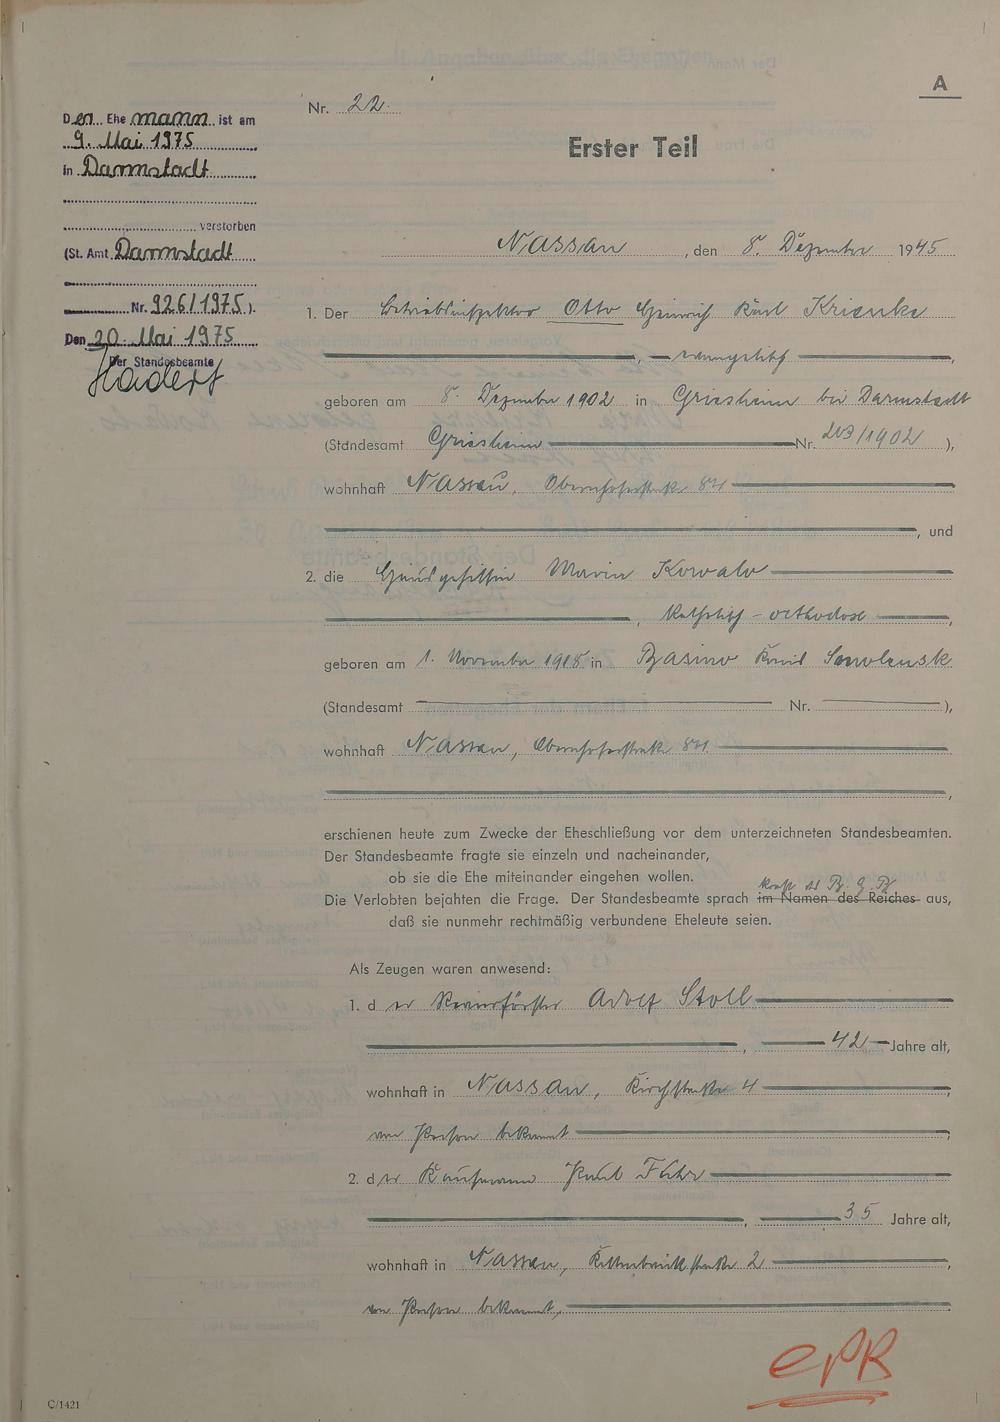 A
Nr. 22.
Erster Teil
Der Ehe mann ist am
9. Mai 1975
in Darmstadt
verstorben
(St. Amt Darmstadt
Nr. 926/1975).
Den 20. Mai 1975
Der Standesbeamte
Nassau, den 8. Dezember 1945
1. Der Betriebsinspektor Otto Heinrich Karl Krienke
, evangelisch,
geboren am 8. Dezember 1902 in Griesheim bei Darmstadt
(Standesamt Griesheim Nr. 213/1902),
wohnhaft Nassau, Obernhoferstraße
, und
2. die Hausgehilfin Maria Kowalo
, Katholisch-orthodose,
geboren am 1. November 1918 in Kreis Smolensk
(Standesamt Nr. ),
wohnhaft Nassau, Obernhoferstraße
,
erschienen heute zum Zwecke der Eheschließung vor dem unterzeichneten Standesbeamten.
Der Standesbeamte fragte sie einzeln und nacheinander,
ob sie die Ehe miteinander eingehen wollen.
kraft des
Die Verlobten bejahten die Frage. Der Standesbeamte sprach im Namen des Reiches aus,
daß sie nunmehr rechtmäßig verbundene Eheleute seien.
Als Zeugen waren anwesend:
1. d er Revierförster Adolf Stoll
, 42 Jahre alt,
wohnhaft in Nassau, Kirchstraße 4,
von Person bekannt;
2. d er Kaufmann Karl
, 35 Jahre alt,
wohnhaft in Nassau, 2,
von Person bekannt,
ePR
C/1421